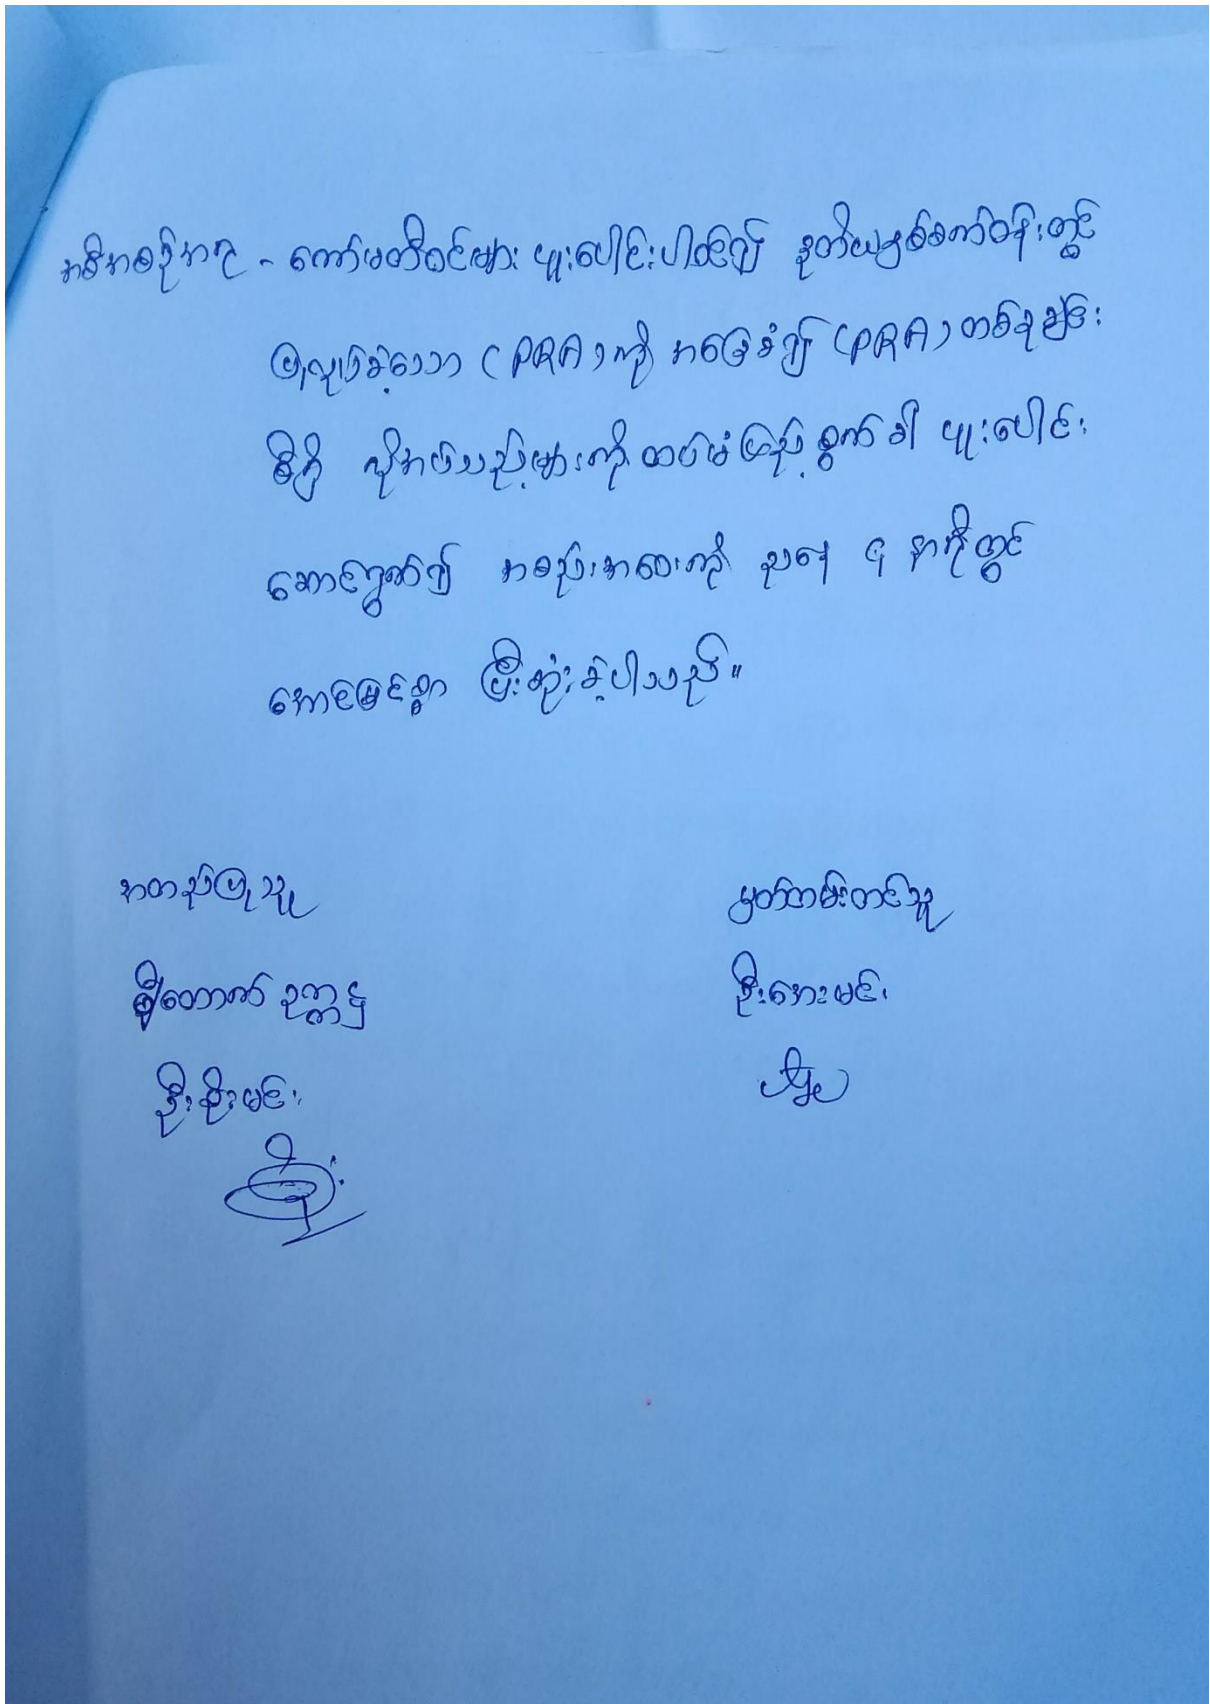 အစီအစဉ်အရ - ကော်မတီဝင်များ ပူးပေါင်းပါဝင်၍ ဒုတိယနှစ်စက်ဝန်းတွင်
ပြုလုပ်ခဲ့သော (PRA) ကို အခြေခံ၍ (PRA) တစ်ခုချင်း
စီရှိ လိုအပ်သည့်များကို ထပ်မံဖြည့်စွက်ခါ ပူးပေါင်း
ဆောင်ရွက်၍ အစည်းအဝေးကို ညနေ ၄ နာရီတွင်
အောင်မြင်စွာ ပြီးဆုံးခဲ့ပါသည်။
အတည်ပြုသူ မှတ်တမ်းတင်သူ
ဥက္ကဋ္ဌ ဦးအေးမင်း
ဦးစိုးမင်း